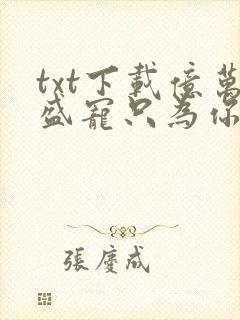 txt下載億萬
盛寵只為你
張慶成